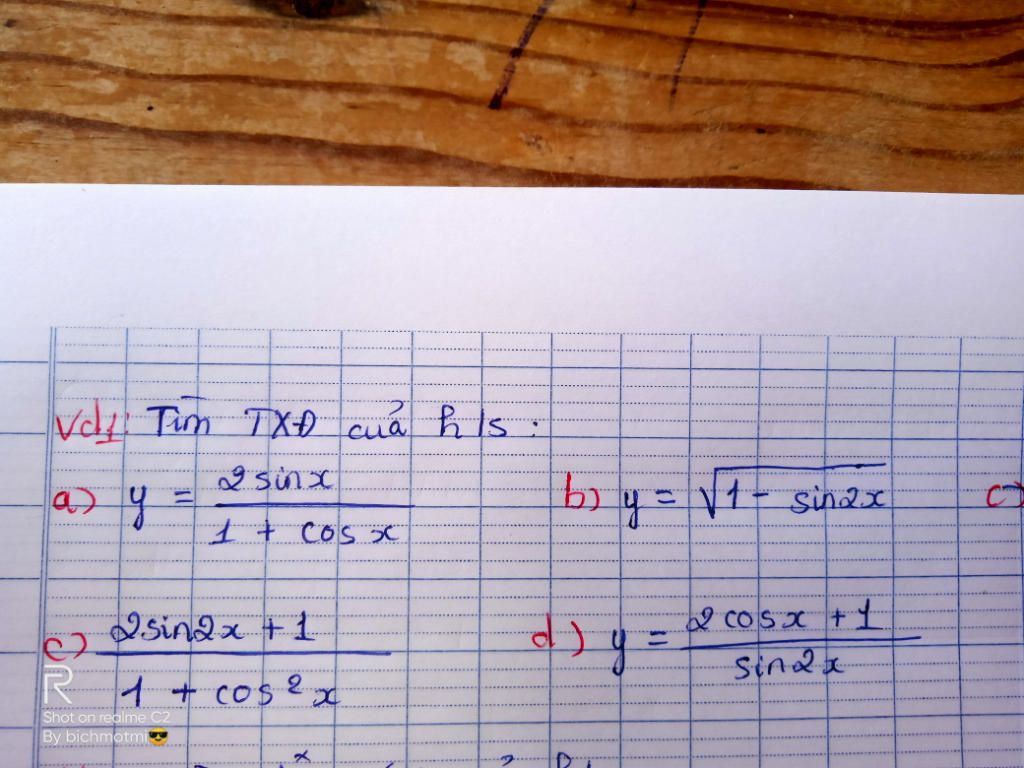 Vd1: Tìm TXĐ của h/s:
a) y = 2sinx / 1 + cosx b) y = √1 - sin2x c)
c) 2sin2x + 1 / 1 + cos²x d) y = 2cosx + 1 / sin2x
R
Shot on realme C2
By bichmotmi😎